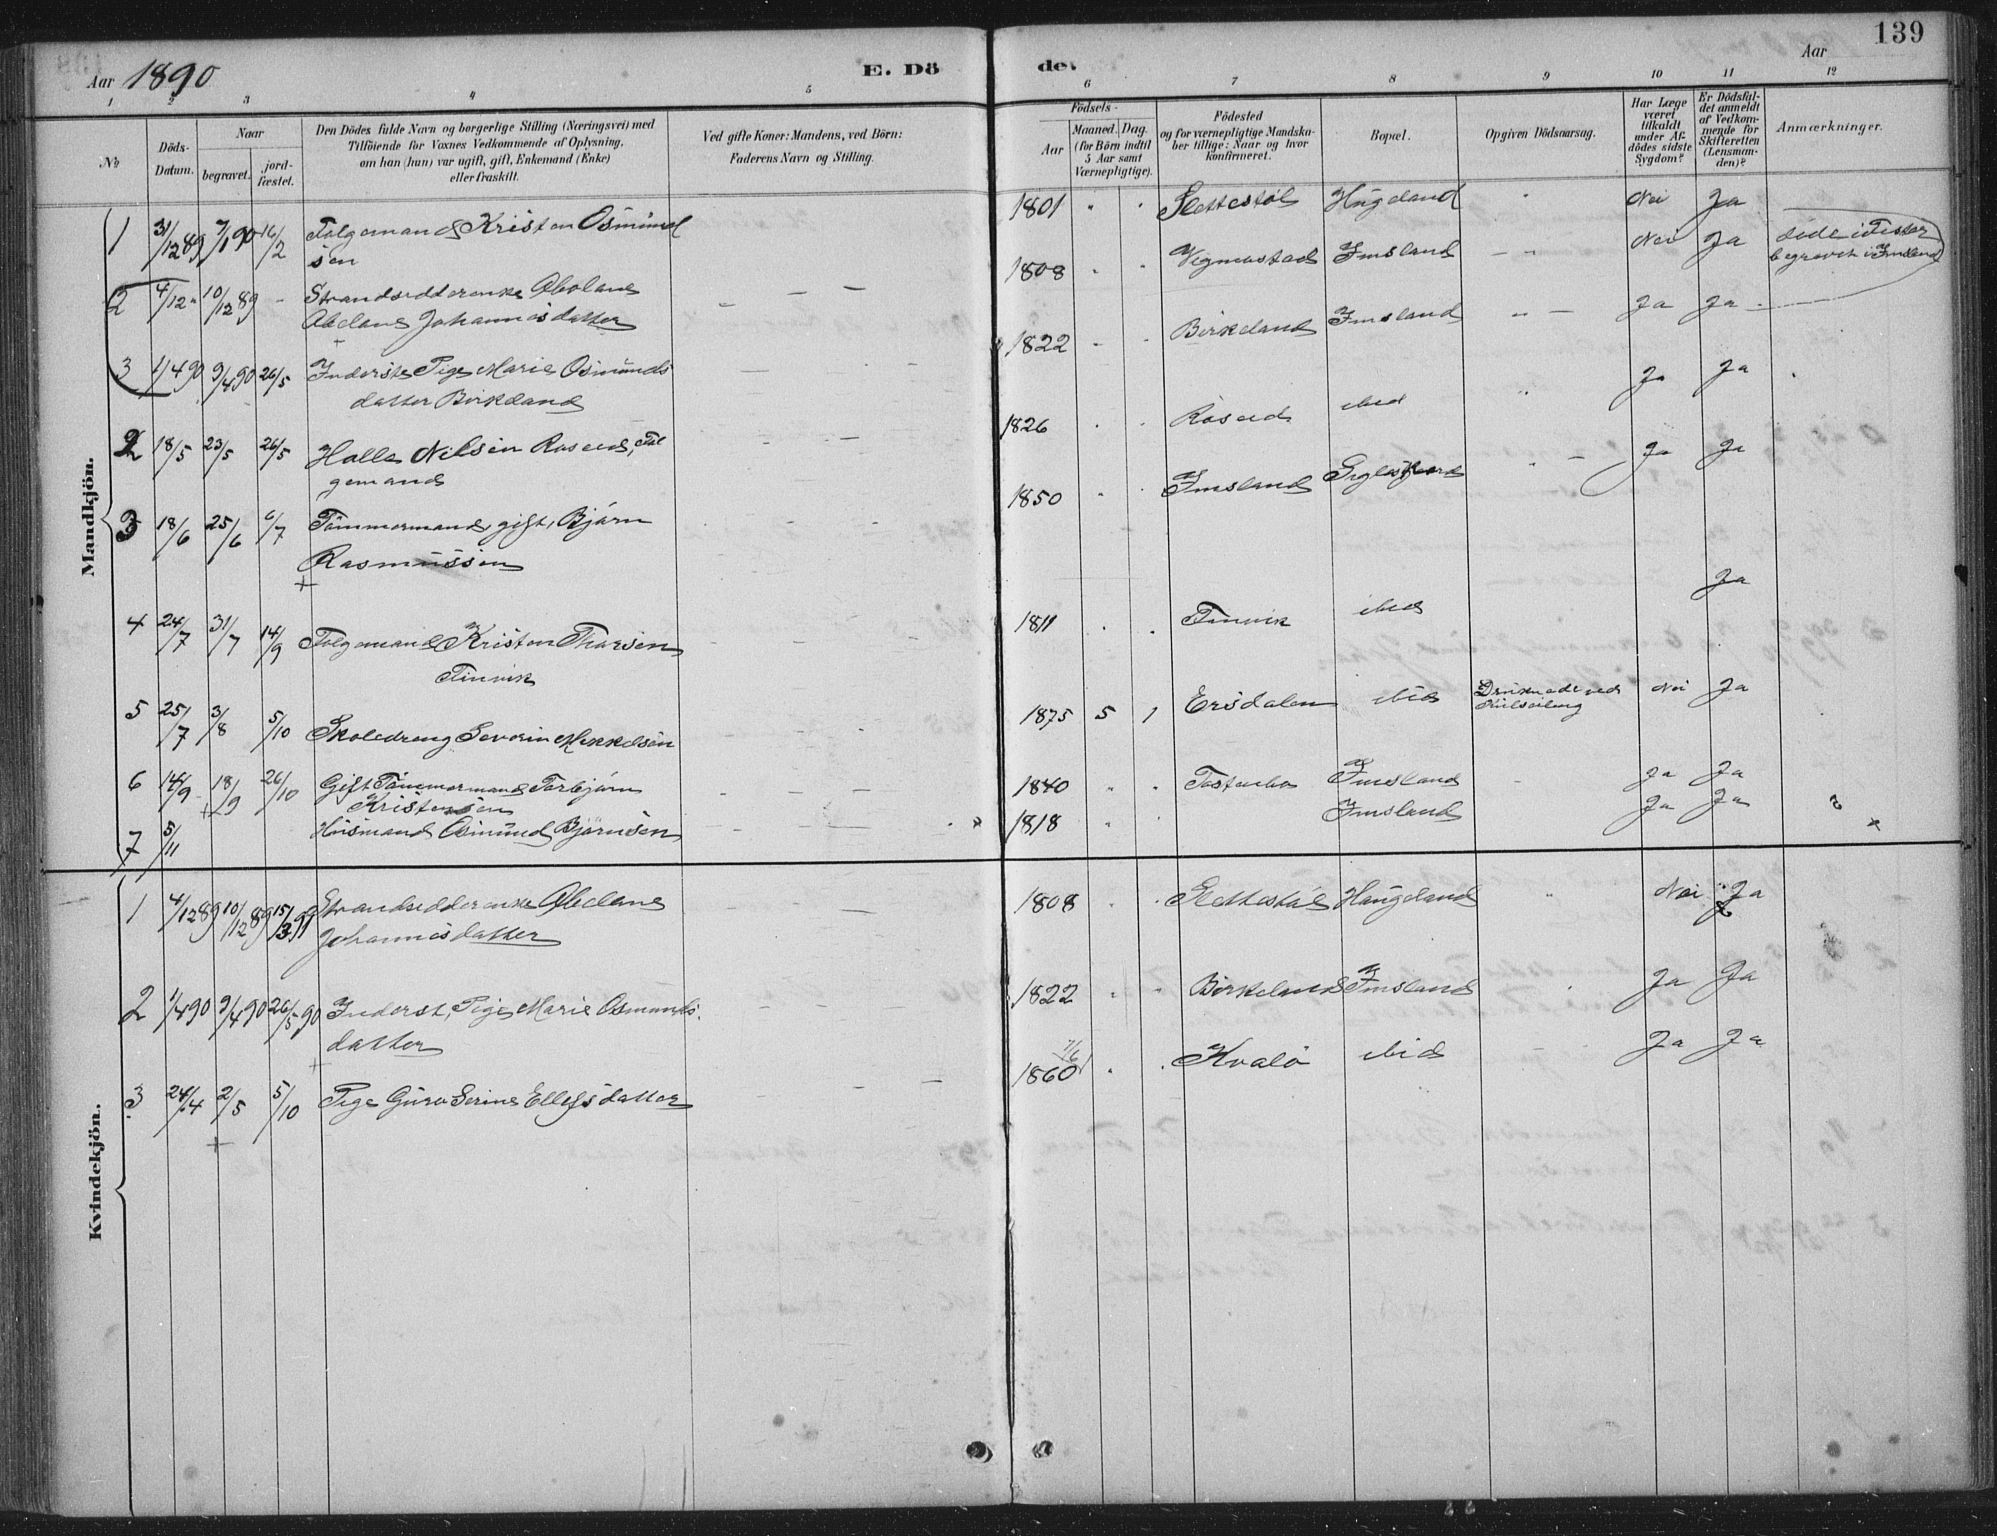 139
Aar 1890
E. Dö
de.
Aar
1 2 3 4 5 6 7 8 9 10 11 12
№
Döds-
Datum.
Naar
begravet.
jord-
fæstet.
Den Dödes fulde Navn og borgerlige Stilling (Næringsvei) med
Tilföiende for Voxnes Vedkommende af Oplysning,
om han (hun) var ugift, gift, Enkemand (Enke)
eller fraskilt.
Ved gifte Koner: Mandens, ved Börn:
Faderens Navn og Stilling.
Födsels-
Aar
Maaned. Dag.
(for Börn indtil
5 Aar samt
Værnepligtige).
Födested
og for værnepligtige Mandska-
ber tillige: Naar og hvor
konfirmeret.
Bopæl.
Opgiven Dödsaarsag.
Har Læge
været
tilkaldt
under Af-
dödes sidste
Sygdom?
Er Dödsfal-
det anmeldt
af Vedkom-
mende for
Skifteretten
(Lensman-
den)?
Anmærkninger.
Mandkjön.
1 31/12 89 7/1 90 16/2 Folgemand Kristen Osmund
sen
1801 " " Slettestöl Haugeland " Nei Ja
2 4/12 " 10/12 89 - Strandsidderenke Abelone
Abelone Johannesdatter
1808 " " Vigmostad Imsland - " Nei Ja
döde i Fister
begravet i Imsland
3 1/4 90 9/4 90 26/5 Inderste Pige Marie Osmunds
datter Birkeland
1822 " " Birkeland Imsland " - Ja Ja -
2 18/5 23/5 26/5 Halle Nilsen Roseid, Fol
gemand
1826 " " Roseid ibid " Ja Ja
3 18/6 25/6 6/7 Tömmermand, gift, Björn
Rasmussen
1850 " " Imsland " - Ja Ja
4 24/7 31/7 14/9 Folgemand Kristen Thorsen
Finvik
1811 " " Finvik ibid Ja
5 25/7 3/8 5/10 Skoledreng Severin Mikkelsen
1875 5 1 Ersdalen ibid Druknede ved
Kulseiling Nei Ja
6 14/9 18/9 26/10 Gift Tömmermand Torbjörn
Kristensen
1840 " " Imsland - Ja Ja
7 5/11 Huusmand Osmund Björnsen
1818 " Imsland Ja Ja
Kvindekjön.
1 4/12 89 10/12 89 15/3 91 Strandsidderenke Abelone
Johannesdatter
1808 " " Slettestöl Haugeland " Nei Ja
2 1/4 90 9/4 90 26/5 90 Inderst, Pige Marie Osmunds.
datter
1822 " " Birkeland Imsland " Ja Ja
3 24/4 2/5 5/10 Pige Guro Serine Ellefsdatter
7/6
1860 " " Kvalö ibid Ja Ja